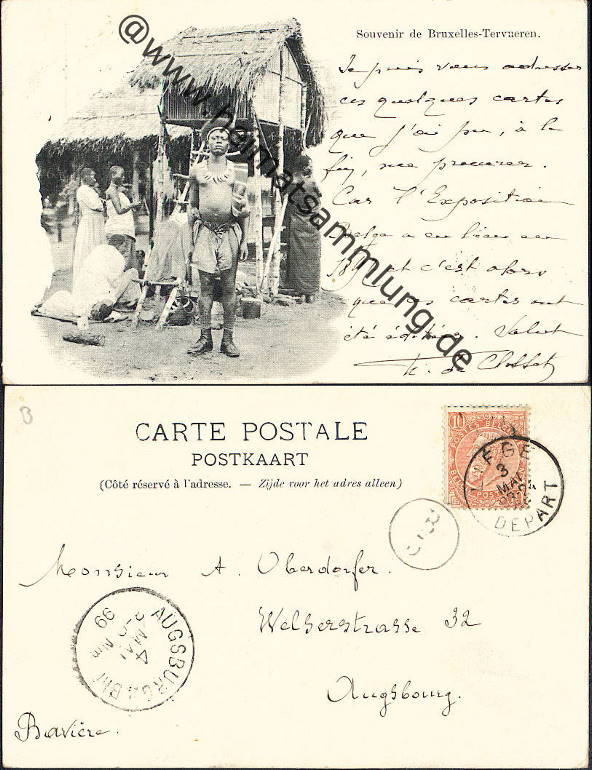 Souvenir de Bruxelles-Tervueren.
Je puis vous adresser
ces quelques cartes
que j'ai pu, à la
fin, me procurer.
Car l'Exposition
belge a eu lieu en
et c'est alors
que les cartes ont
été éditées. Salut
www.heimatsammlung.de
B
CARTE POSTALE
POSTKAART
(Côté réservé à l'adresse. — Zijde voor het adres alleen)
10
EGE
3
MAI
DEPART
Monsieur A. Oberdorfer.
Welserstrasse 32
Augsbourg.
Bavière.
AUGSBURG
4
MAI
99